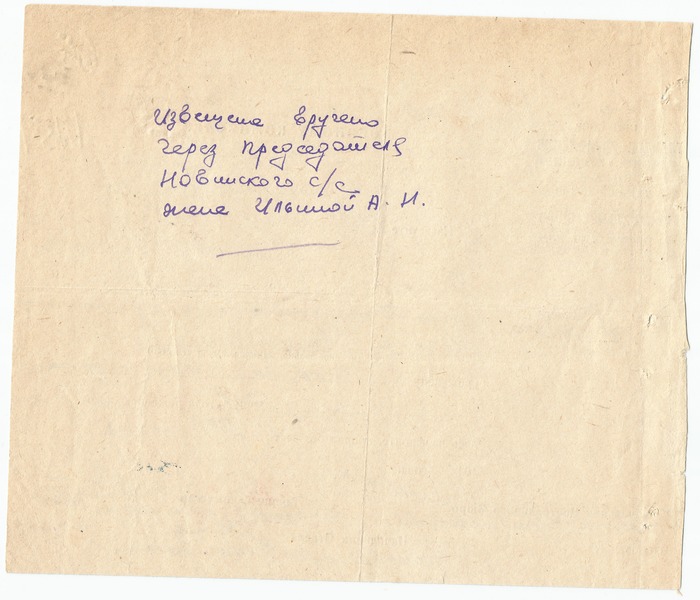 Извещение вручено
через председателя
Новинского с/с
жене Ильиной А. И.